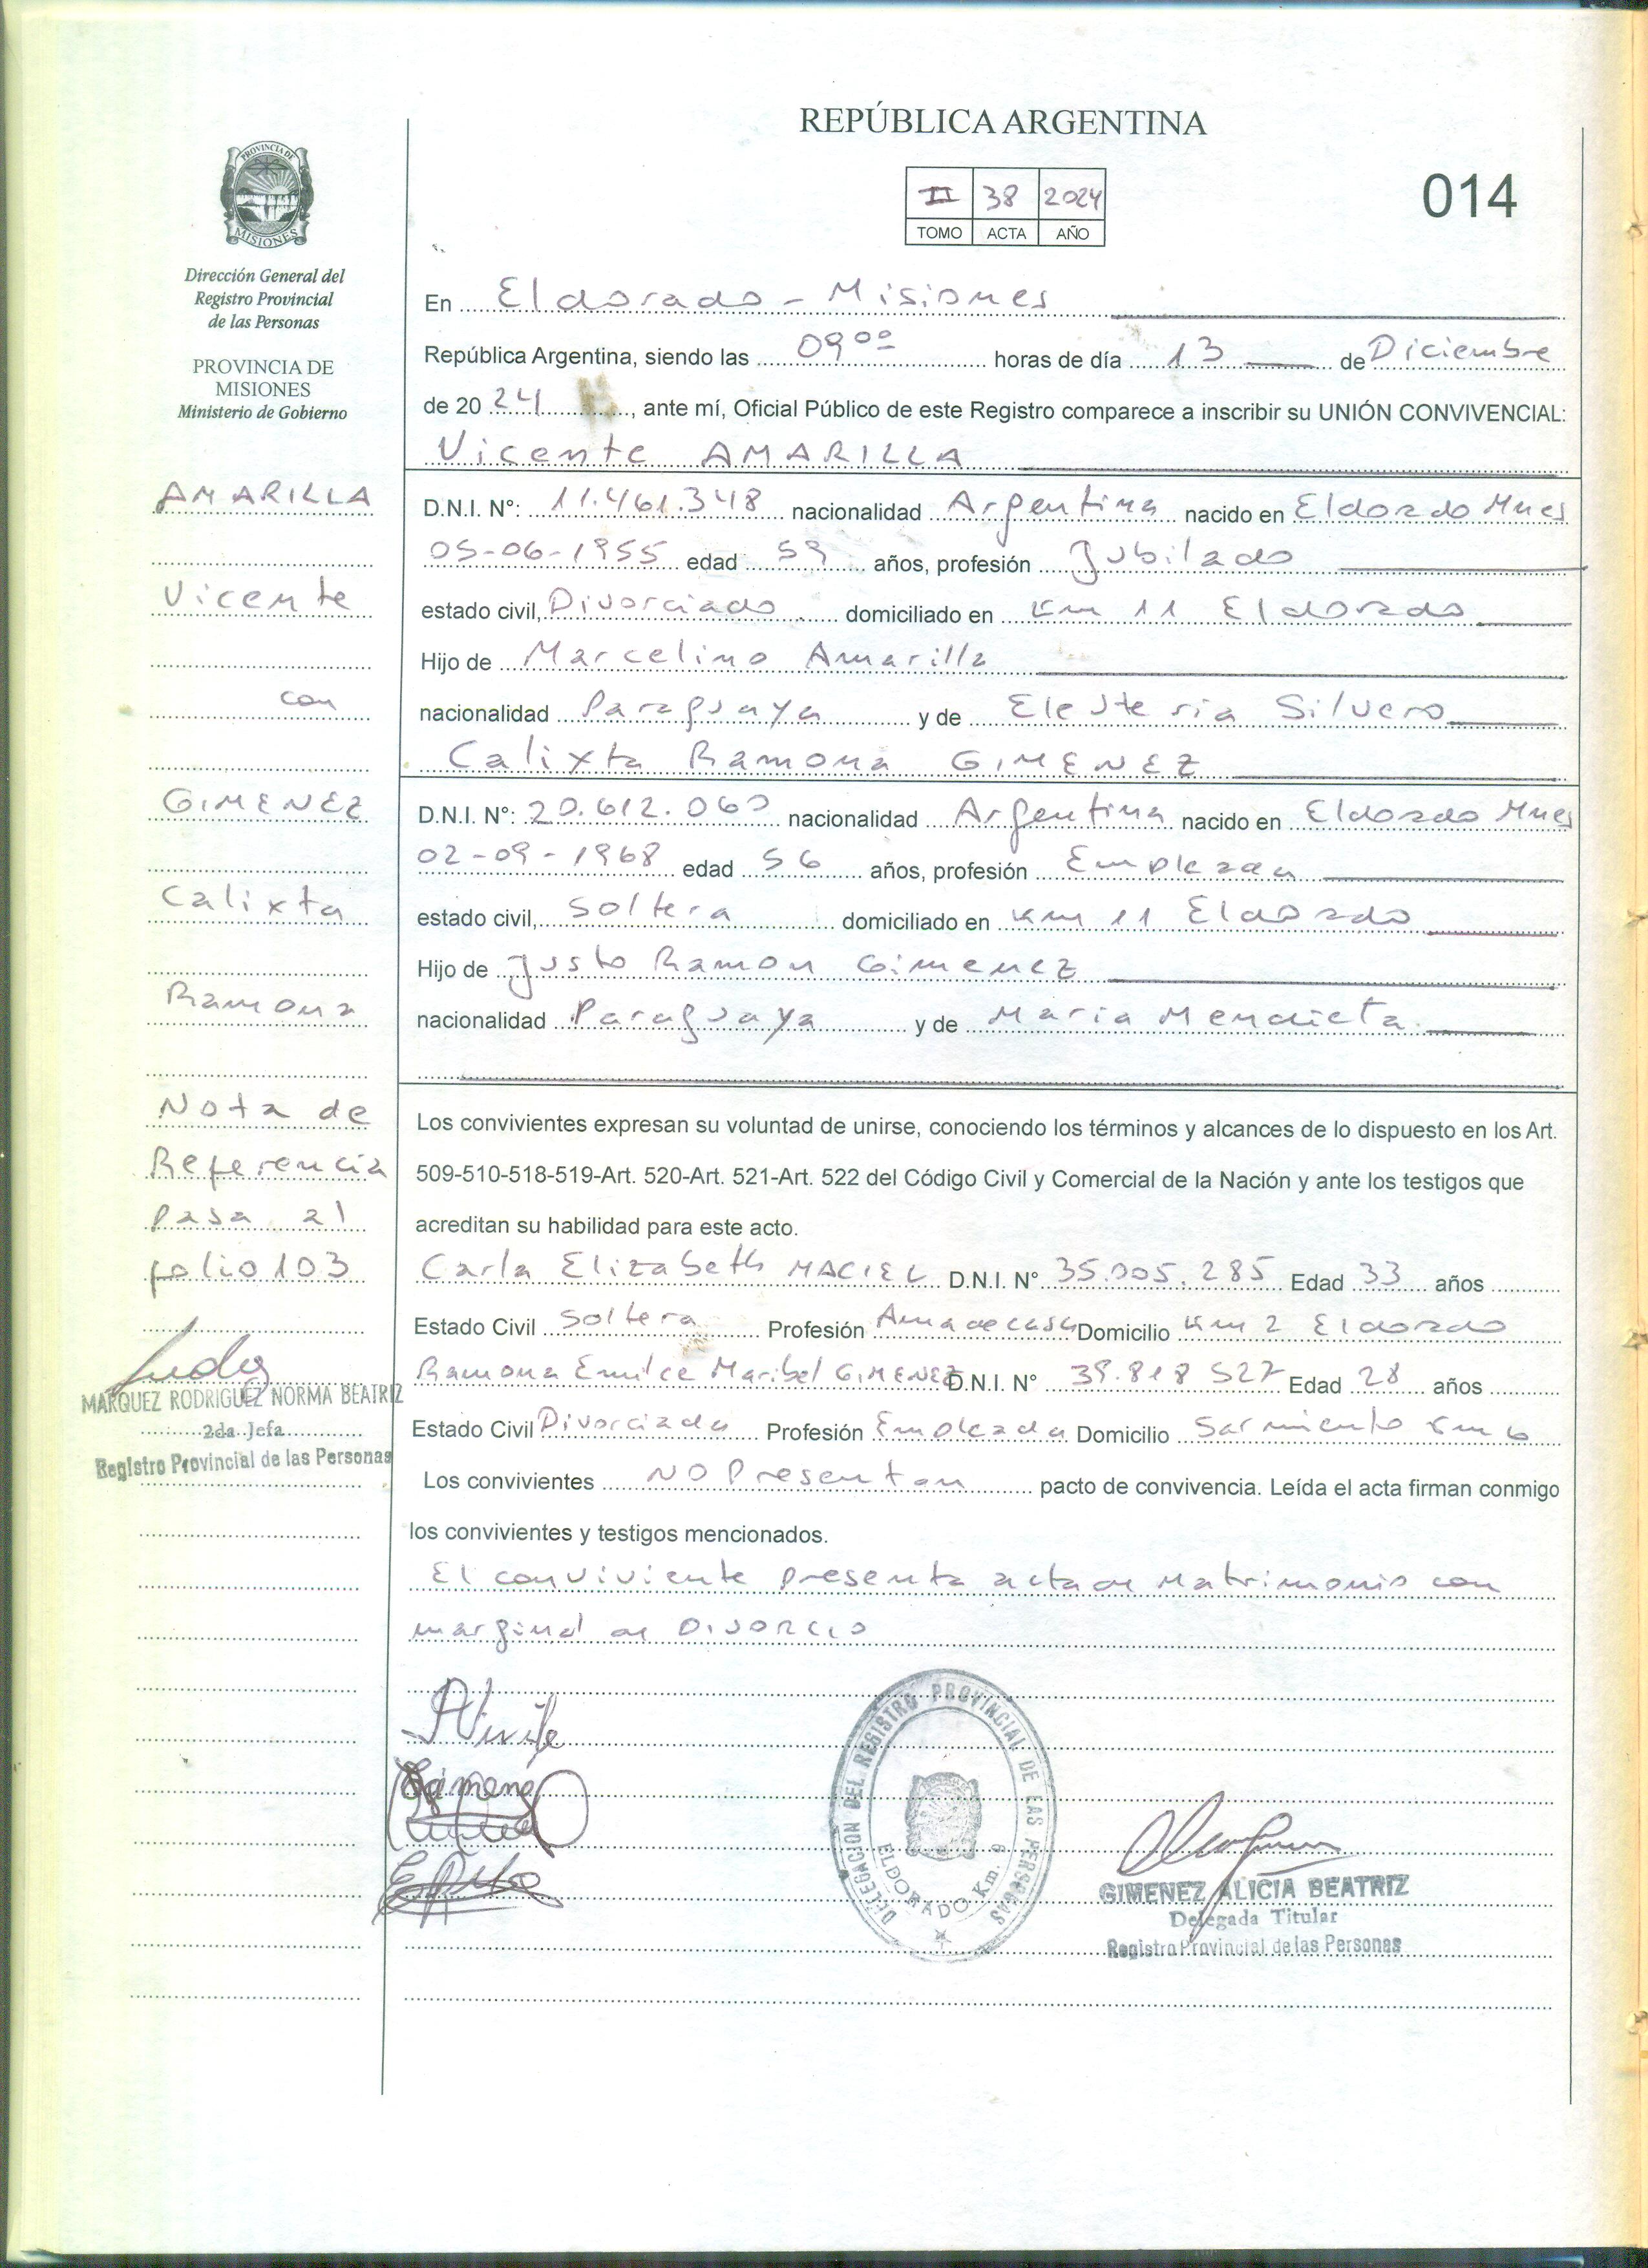 REPÚBLICA ARGENTINA
II 38 2024
TOMO ACTA AÑO
014
PROVINCIA DE
MISIONES
Dirección General del
Registro Provincial
de las Personas
PROVINCIA DE
MISIONES
Ministerio de Gobierno
AMARILLA
Vicente
con
GIMENEZ
Calixta
Ramona
Nota de
Referencia
pasa al
folio 103
MARQUEZ RODRIGUEZ NORMA BEATRIZ
2da. Jefa
Registro Provincial de las Personas
En Eldorado - Misiones
República Argentina, siendo las 09 00 horas de día 13 de Diciembre
de 20 24, ante mí, Oficial Público de este Registro comparece a inscribir su UNIÓN CONVIVENCIAL:
Vicente AMARILLA
D.N.I. N°: 11.461.348 nacionalidad Argentina nacido en Eldorado Mnes
05-06-1955 edad 59 años, profesión Jubilado
estado civil, Divorciado domiciliado en Km 11 Eldorado
Hijo de Marcelino Amarilla
nacionalidad Paraguaya y de Eleuteria Silvero
Calixta Ramona GIMENEZ
D.N.I. N°: 20.612.060 nacionalidad Argentina nacido en Eldorado Mnes
02-09-1968 edad 56 años, profesión Empleada
estado civil, Soltera domiciliado en Km 11 Eldorado
Hijo de Justo Ramon Gimenez
nacionalidad Paraguaya y de Maria Mendieta.
Los convivientes expresan su voluntad de unirse, conociendo los términos y alcances de lo dispuesto en los Art.
509-510-518-519-Art. 520-Art. 521-Art. 522 del Código Civil y Comercial de la Nación y ante los testigos que
acreditan su habilidad para este acto.
Carla Elizabeth MACIEL D.N.I. N° 35.005.285 Edad 33 años
Estado Civil Soltera Profesión Ama de casa Domicilio Km 2 Eldorado
Ramona Emilce Maribel GIMENEZ D.N.I. N° 39.818 527 Edad 28 años
Estado Civil Divorciada Profesión Empleada Domicilio Sarmiento Km 6
Los convivientes NO Presentan pacto de convivencia. Leída el acta firman conmigo
los convivientes y testigos mencionados.
El conviviente presenta acta de Matrimonio con
marginal de DIVORCIO
DELEGACION DEL REGISTRO PROVINCIAL DE LAS PERSONAS
ELDORADO Km. 9
GIMENEZ ALICIA BEATRIZ
Delegada Titular
Registro Provincial de las Personas